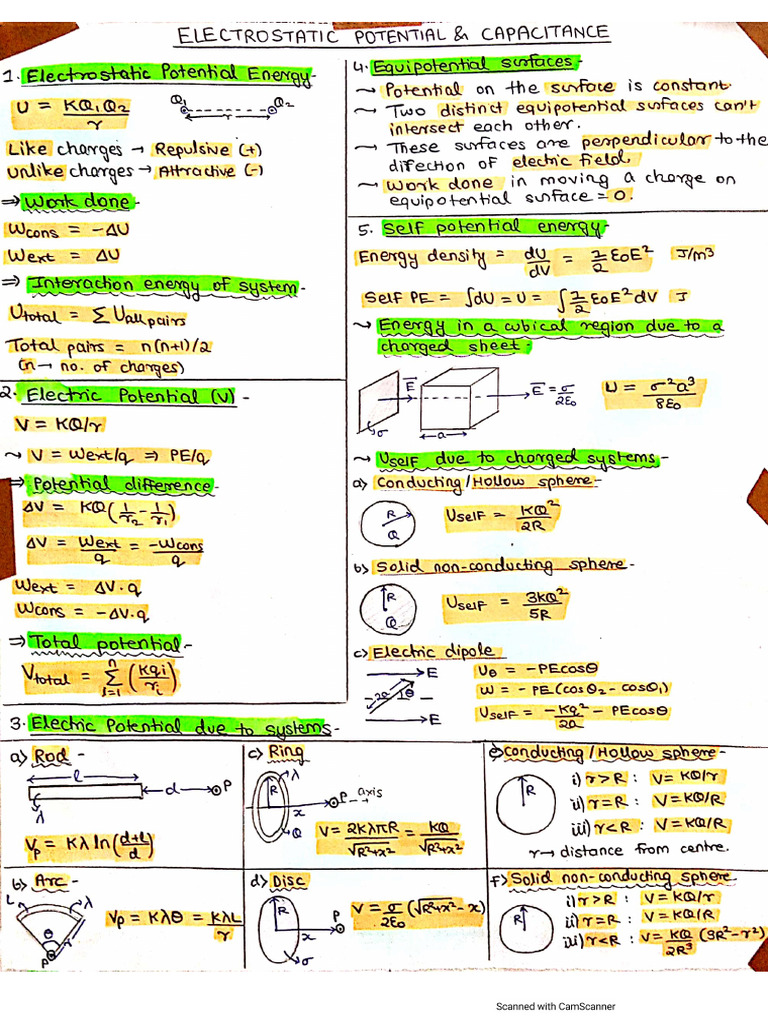 ELECTROSTATIC POTENTIAL & CAPACITANCE
1. Electrostatic Potential Energy-
U = KQ₁Q₂/r
Q₁ Q₂
r
Like charges → Repulsive (+)
Unlike charges → Attractive (-)
⇒ Work done-
Wcons = -ΔU
Wext = ΔU
⇒ Interaction energy of system-
Utotal = Σ Uall pairs
Total pairs = n(n+1)/2
(n → no. of charges)
2. Electric Potential (V) -
V = KQ/r
~ V = Wext/q ⇒ PE/q
⇒ Potential difference-
ΔV = KQ(1/r₂ - 1/r₁)
ΔV = Wext/q = -Wcons/q
Wext = ΔV.q
Wcons = -ΔV.q
⇒ Total potential-
Vtotal = Σ (Kqi/ri)
n
i=1
4. Equipotential surfaces-
~ Potential on the surface is constant.
~ Two distinct equipotential surfaces can't
intersect each other.
~ These surfaces are perpendicular to the
direction of electric field.
~ Work done in moving a charge on
equipotential surface = 0.
5. Self potential energy-
Energy density = dU/dV = 1/2 ε₀E² J/m³
Self PE = ∫dU = U = ∫1/2 ε₀E² dV J
~ Energy in a cubical region due to a
charged sheet-
E
σ
a
E = σ/2ε₀
U = σ²a³/8ε₀
~ Uself due to charged systems-
a) Conducting/Hollow sphere-
R
Q
Uself = KQ²/2R
b) Solid non-conducting sphere-
R
Q
Uself = 3KQ²/5R
c) Electric dipole
E
2a
θ
E
Uθ = -PEcosθ
W = -PE(cosθ₂ - cosθ₁)
Uself = -Kq²/2a - PEcosθ
3. Electric Potential due to systems-
a) Rod -
l
d
P
λ
Vp = Kλ ln(d+l/d)
b) Arc-
L
λ
θ
r
P
Vp = Kλθ = KλL/r
c) Ring
λ
R
P → axis
x
Q
V = 2KλπR/√R²+x² = KQ/√R²+x²
d) Disc
R
P
x
σ
V = σ/2ε₀ (√R²+x² - x)
e) Conducting/Hollow sphere-
R
i) r>R : V = KQ/r
ii) r=R : V = KQ/R
iii) r<R : V = KQ/R
r → distance from centre.
f) Solid non-conducting sphere
R
i) r>R : V = KQ/r
ii) r=R : V = KQ/R
iii) r<R : V = KQ/2R³ (3R²-r²)
Scanned with CamScanner